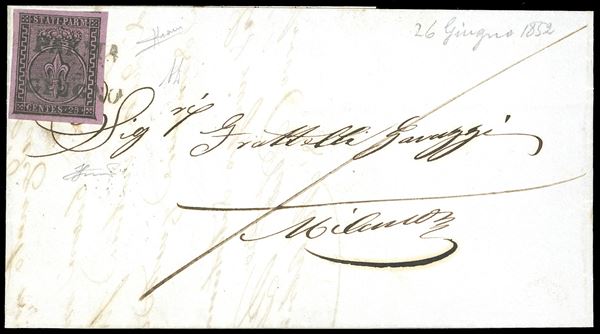 STATI PARM.
CENTES. 25
26 Giugno 1852
Sig.ri
Fratelli Gavazzi
Milano